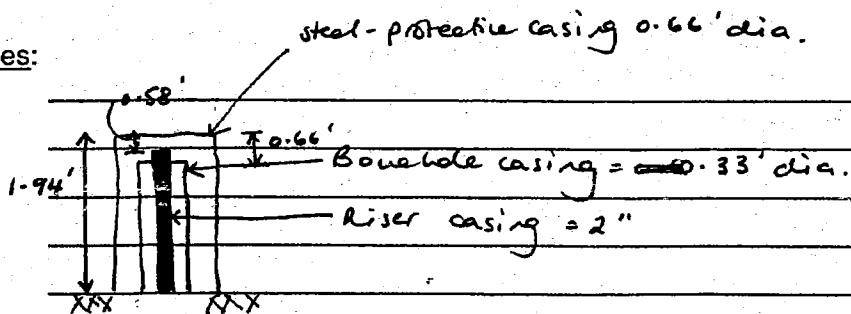 steel-protective casing 0.66' dia.
es:
0.58'
0.66'
Borehole casing = 0.33' dia.
1.94'
Riser casing = 2"
XXX XXX